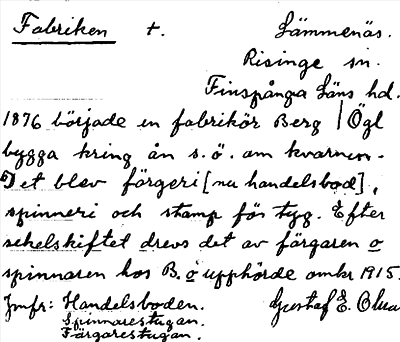 Fabriken t. Lämmenäs.
Risinge sn.
Finspånga Läns hd.
1876 började en fabrikör Berg / Ögl
bygga kring ån s.ö. om kvarnen.
Det blev färgeri [nu handelsbod],
spinneri och stamp för tyg. Efter
sekelskiftet drevs det av färgaren o
spinnaren hos B. o upphörde omkr 1915.
Jmfr: Handelsboden. Gustaf E.
Spinnarestugan.
Färgarestugan.